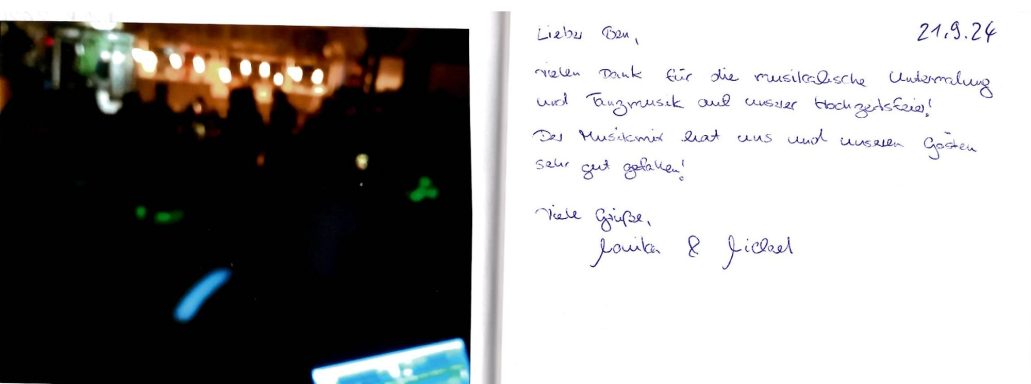 21.9.24
Lieber Ben,
vielen Dank für die musikalische Untermalung
und Tanzmusik auf unserer Hochzeitsfeier!
Der Musikmix hat uns und unseren Gästen
sehr gut gefallen!
Viele Grüße,
Monika & Michael